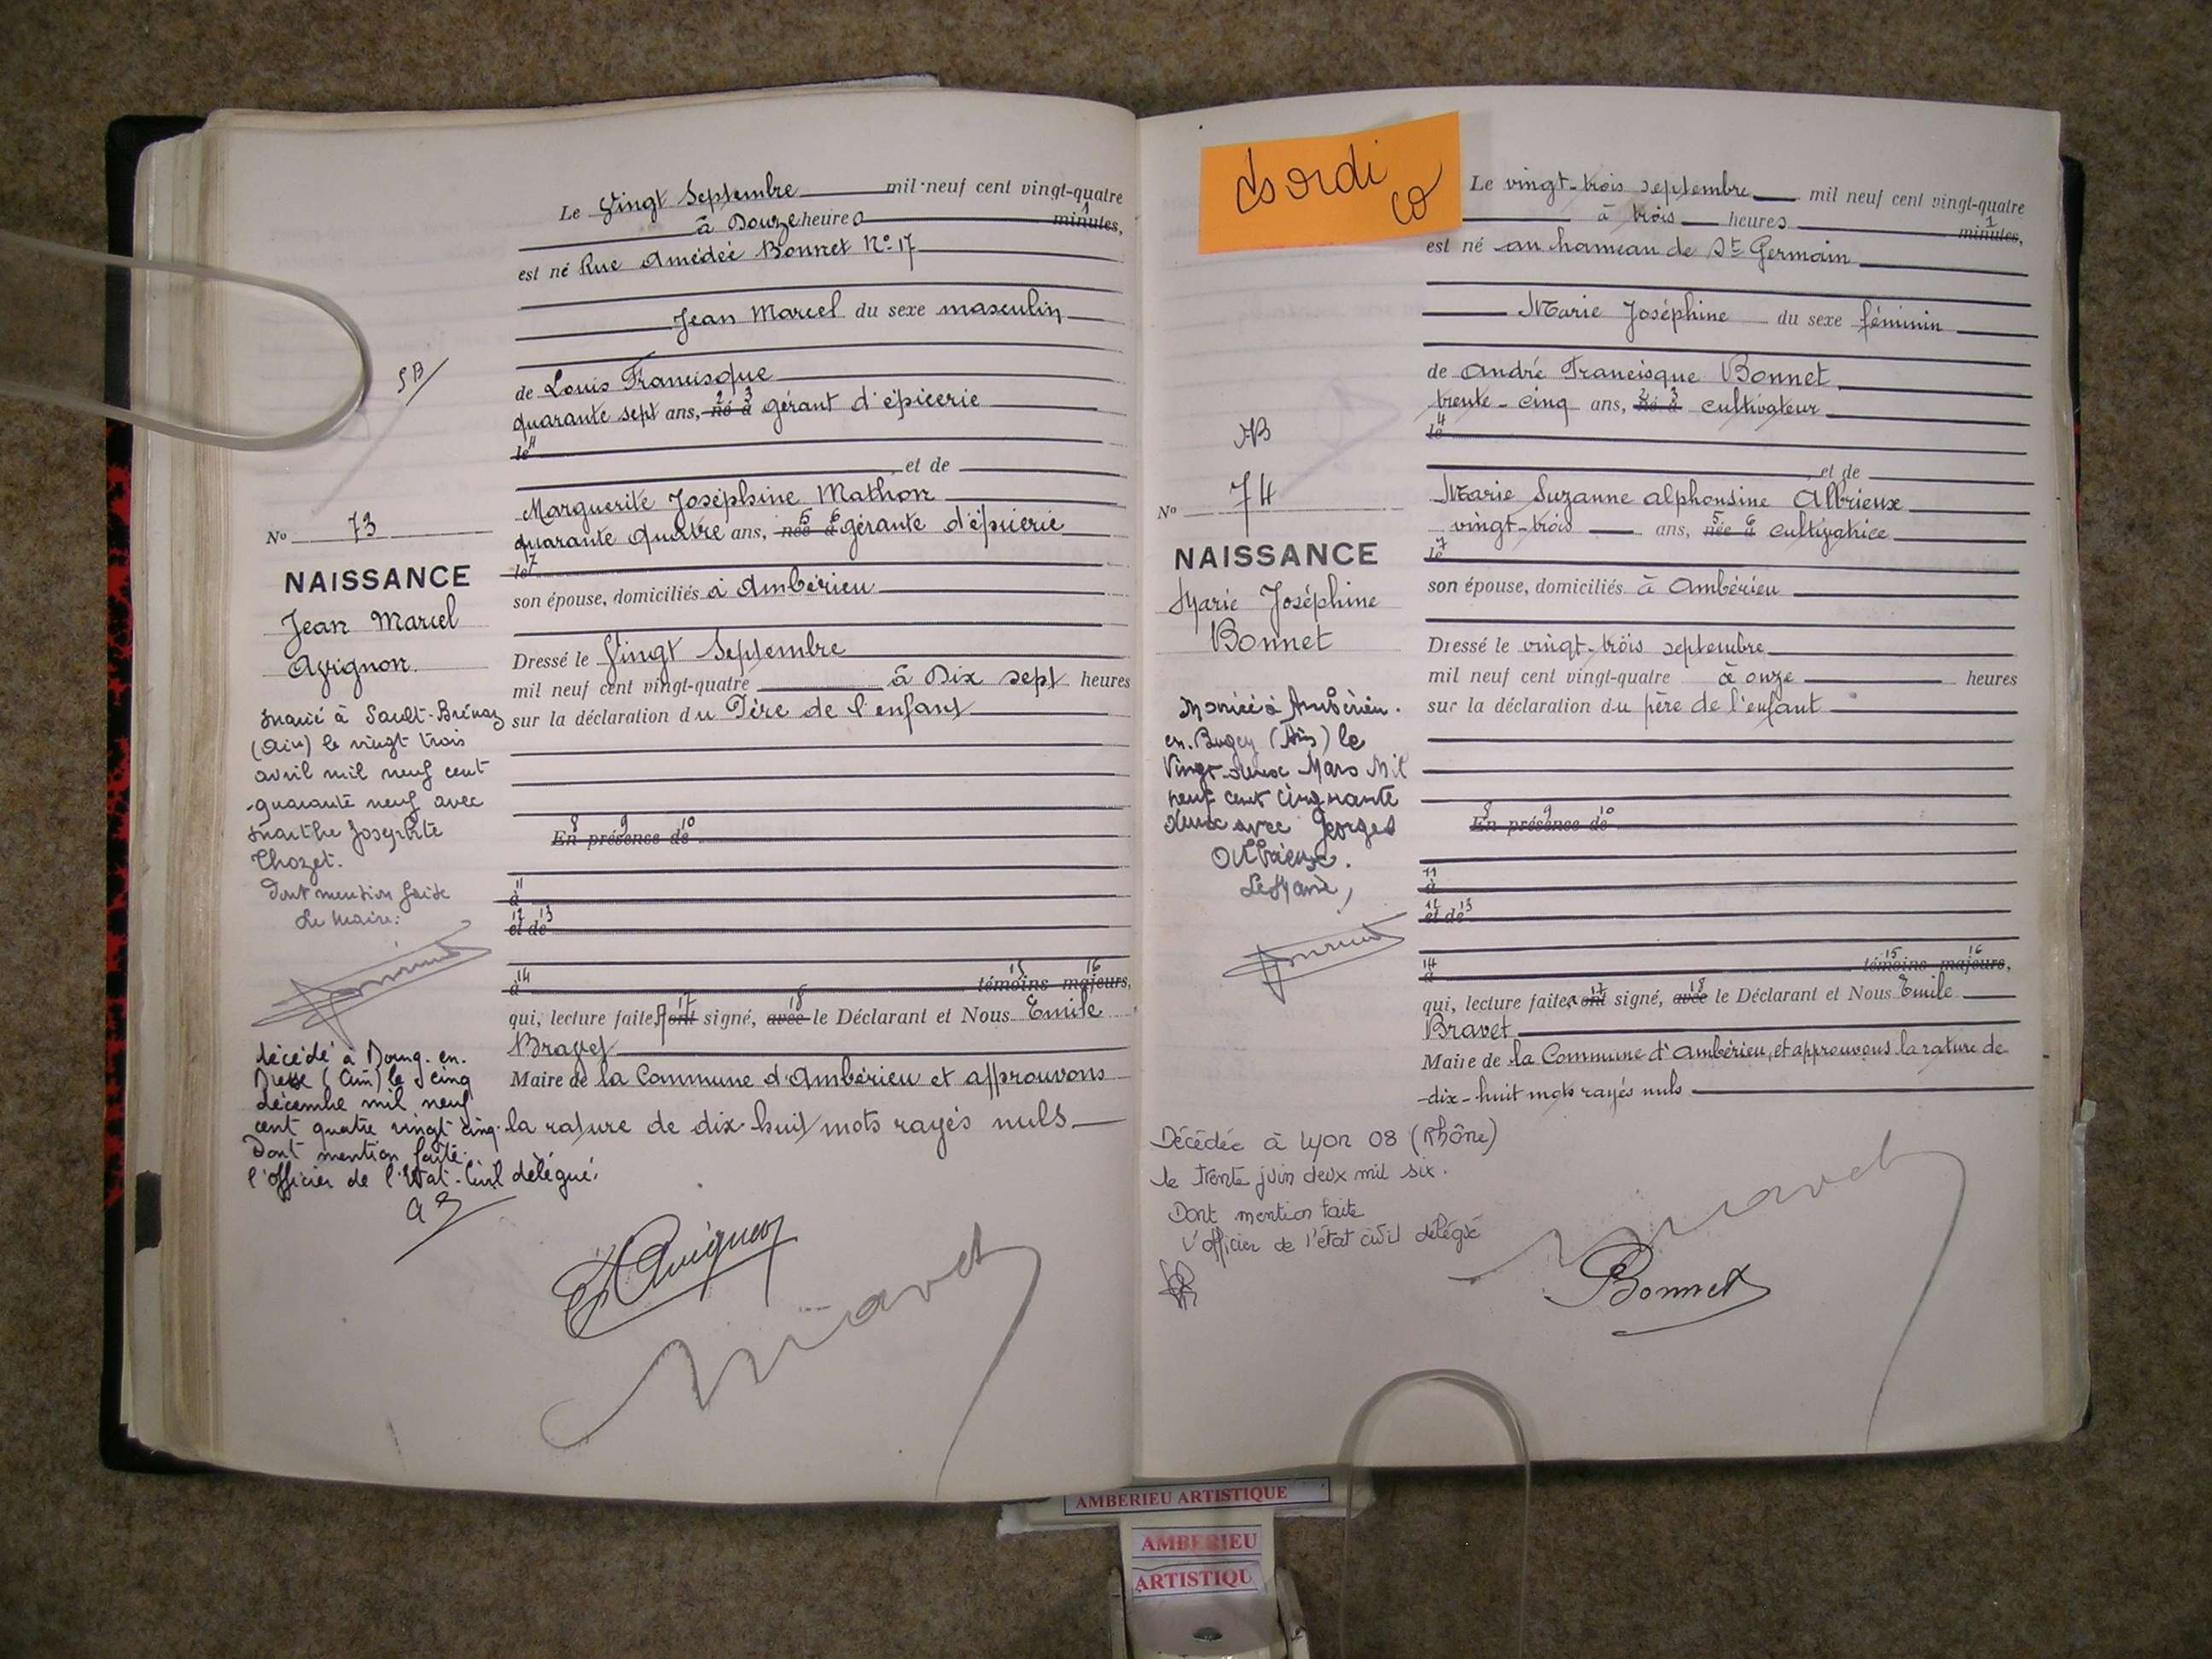 Le Vingt Septembre mil neuf cent vingt-quatre
à Douze heures minutes, 1
est né Rue Amédée Bonnet No 17
Jean Marcel du sexe masculin
de Louis Francisque
quarante sept ans, né à 2 3 gérant d'épicerie
le 4
et de
Marguerite Joséphine Mathon
quarante quatre ans, née à 5 6 gérante d'épicerie
le 7
son épouse, domiciliés à Ambérieu
Dressé le Vingt Septembre
mil neuf cent vingt-quatre à Dix sept heures
sur la déclaration du Père de l'enfant
8 9 10
En présence de
11
à
12 13
et de
14 15 16
à témoins majeurs,
qui, lecture faite, ont 17 signé, avec 18 le Déclarant et Nous Emile
Bravet
Maire de la Commune d'Ambérieu et approuvons
la rature de dix-huit mots rayés nuls
SB
No 73
NAISSANCE
Jean Marcel
Avignon
marié à Sault-Brénaz
(Ain) le vingt trois
avril mil neuf cent
quarante neuf avec
Marthe Josephte
Thozet.
Dont mention faite
Le Maire:
décédé à Bourg-en-
Bresse (Ain) le cinq
décembre mil neuf
cent quatre vingt cinq.
Dont mention faite.
l'officier de l'Etat-Civil délégué,
Avignon
Bravet
co
Le vingt-trois septembre mil neuf cent vingt-quatre
à trois heures minutes, 1
est né au hameau de St Germain
Marie Joséphine du sexe féminin
de André Francisque Bonnet
trente-cinq ans, né à 2 3 cultivateur
le 4
et de
Marie Suzanne Alphonsine Albrieux
vingt-trois ans, née à 5 6 cultivatrice
le 7
son épouse, domiciliés à Ambérieu
Dressé le vingt-trois septembre
mil neuf cent vingt-quatre à onze heures
sur la déclaration du père de l'enfant
8 9 10
En présence de
11
à
12 13
et de
14 15 16
à témoins majeurs,
qui, lecture faite, ont 17 signé, avec 18 le Déclarant et Nous Emile
Bravet
Maire de la Commune d'Ambérieu, et approuvons la rature de
dix-huit mots rayés nuls
No 74
NAISSANCE
Marie Joséphine
Bonnet
Mariée à Ambérieu-
en-Bugey (Ain) le
Vingt-deux Mars Mil
neuf cent cinquante
deux avec Georges
Le Maire,
Décédée à Lyon 08 (Rhône)
le trente juin deux mil six.
Dont mention faite
L'officier de l'état civil délégué
Bravet
Bonnet
AMBERIEU ARTISTIQUE
AMBERIEU
ARTISTIQU